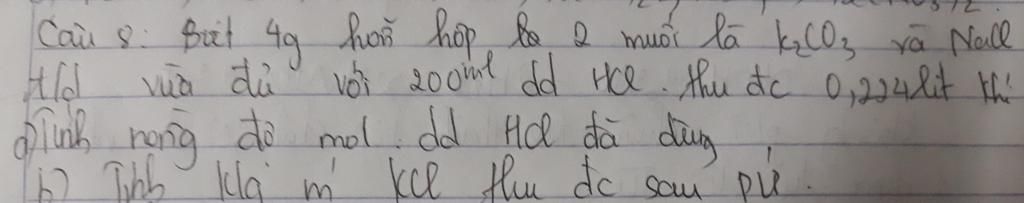 Câu 8: Biết 4g hỗn hợp 2 muối là K₂CO₃ và NaCl
t/d vừa đủ với 200ml dd HCl. thu đc 0,224 lít khí
a) Tính nồng độ mol dd HCl đã dùng
b) Tính KCl thu đc sau pứ.